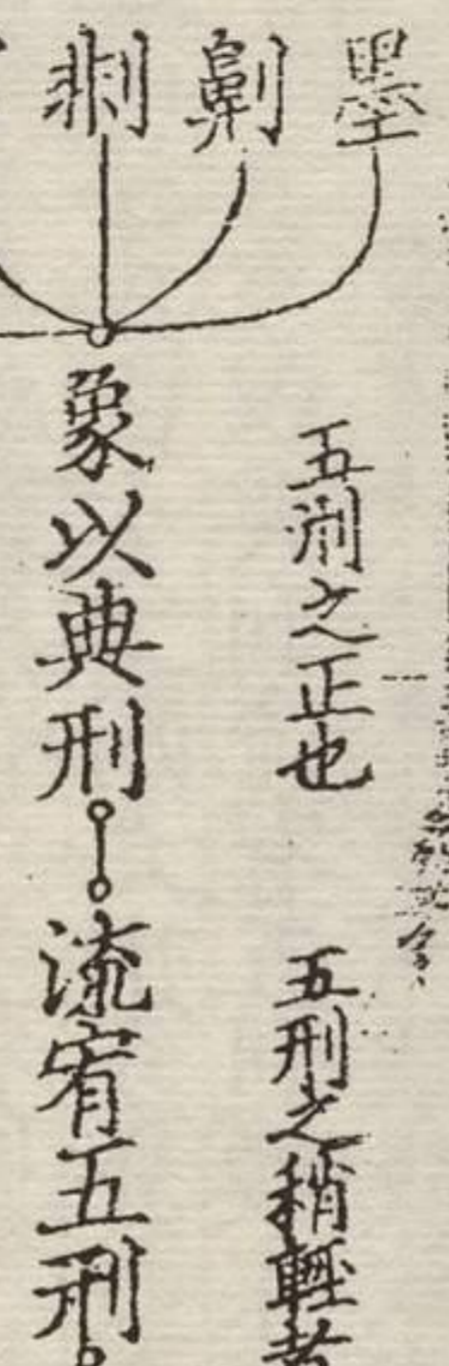 墨
劓
剕
五刑之正也
五刑之稍輕者
象以典刑
流宥五刑